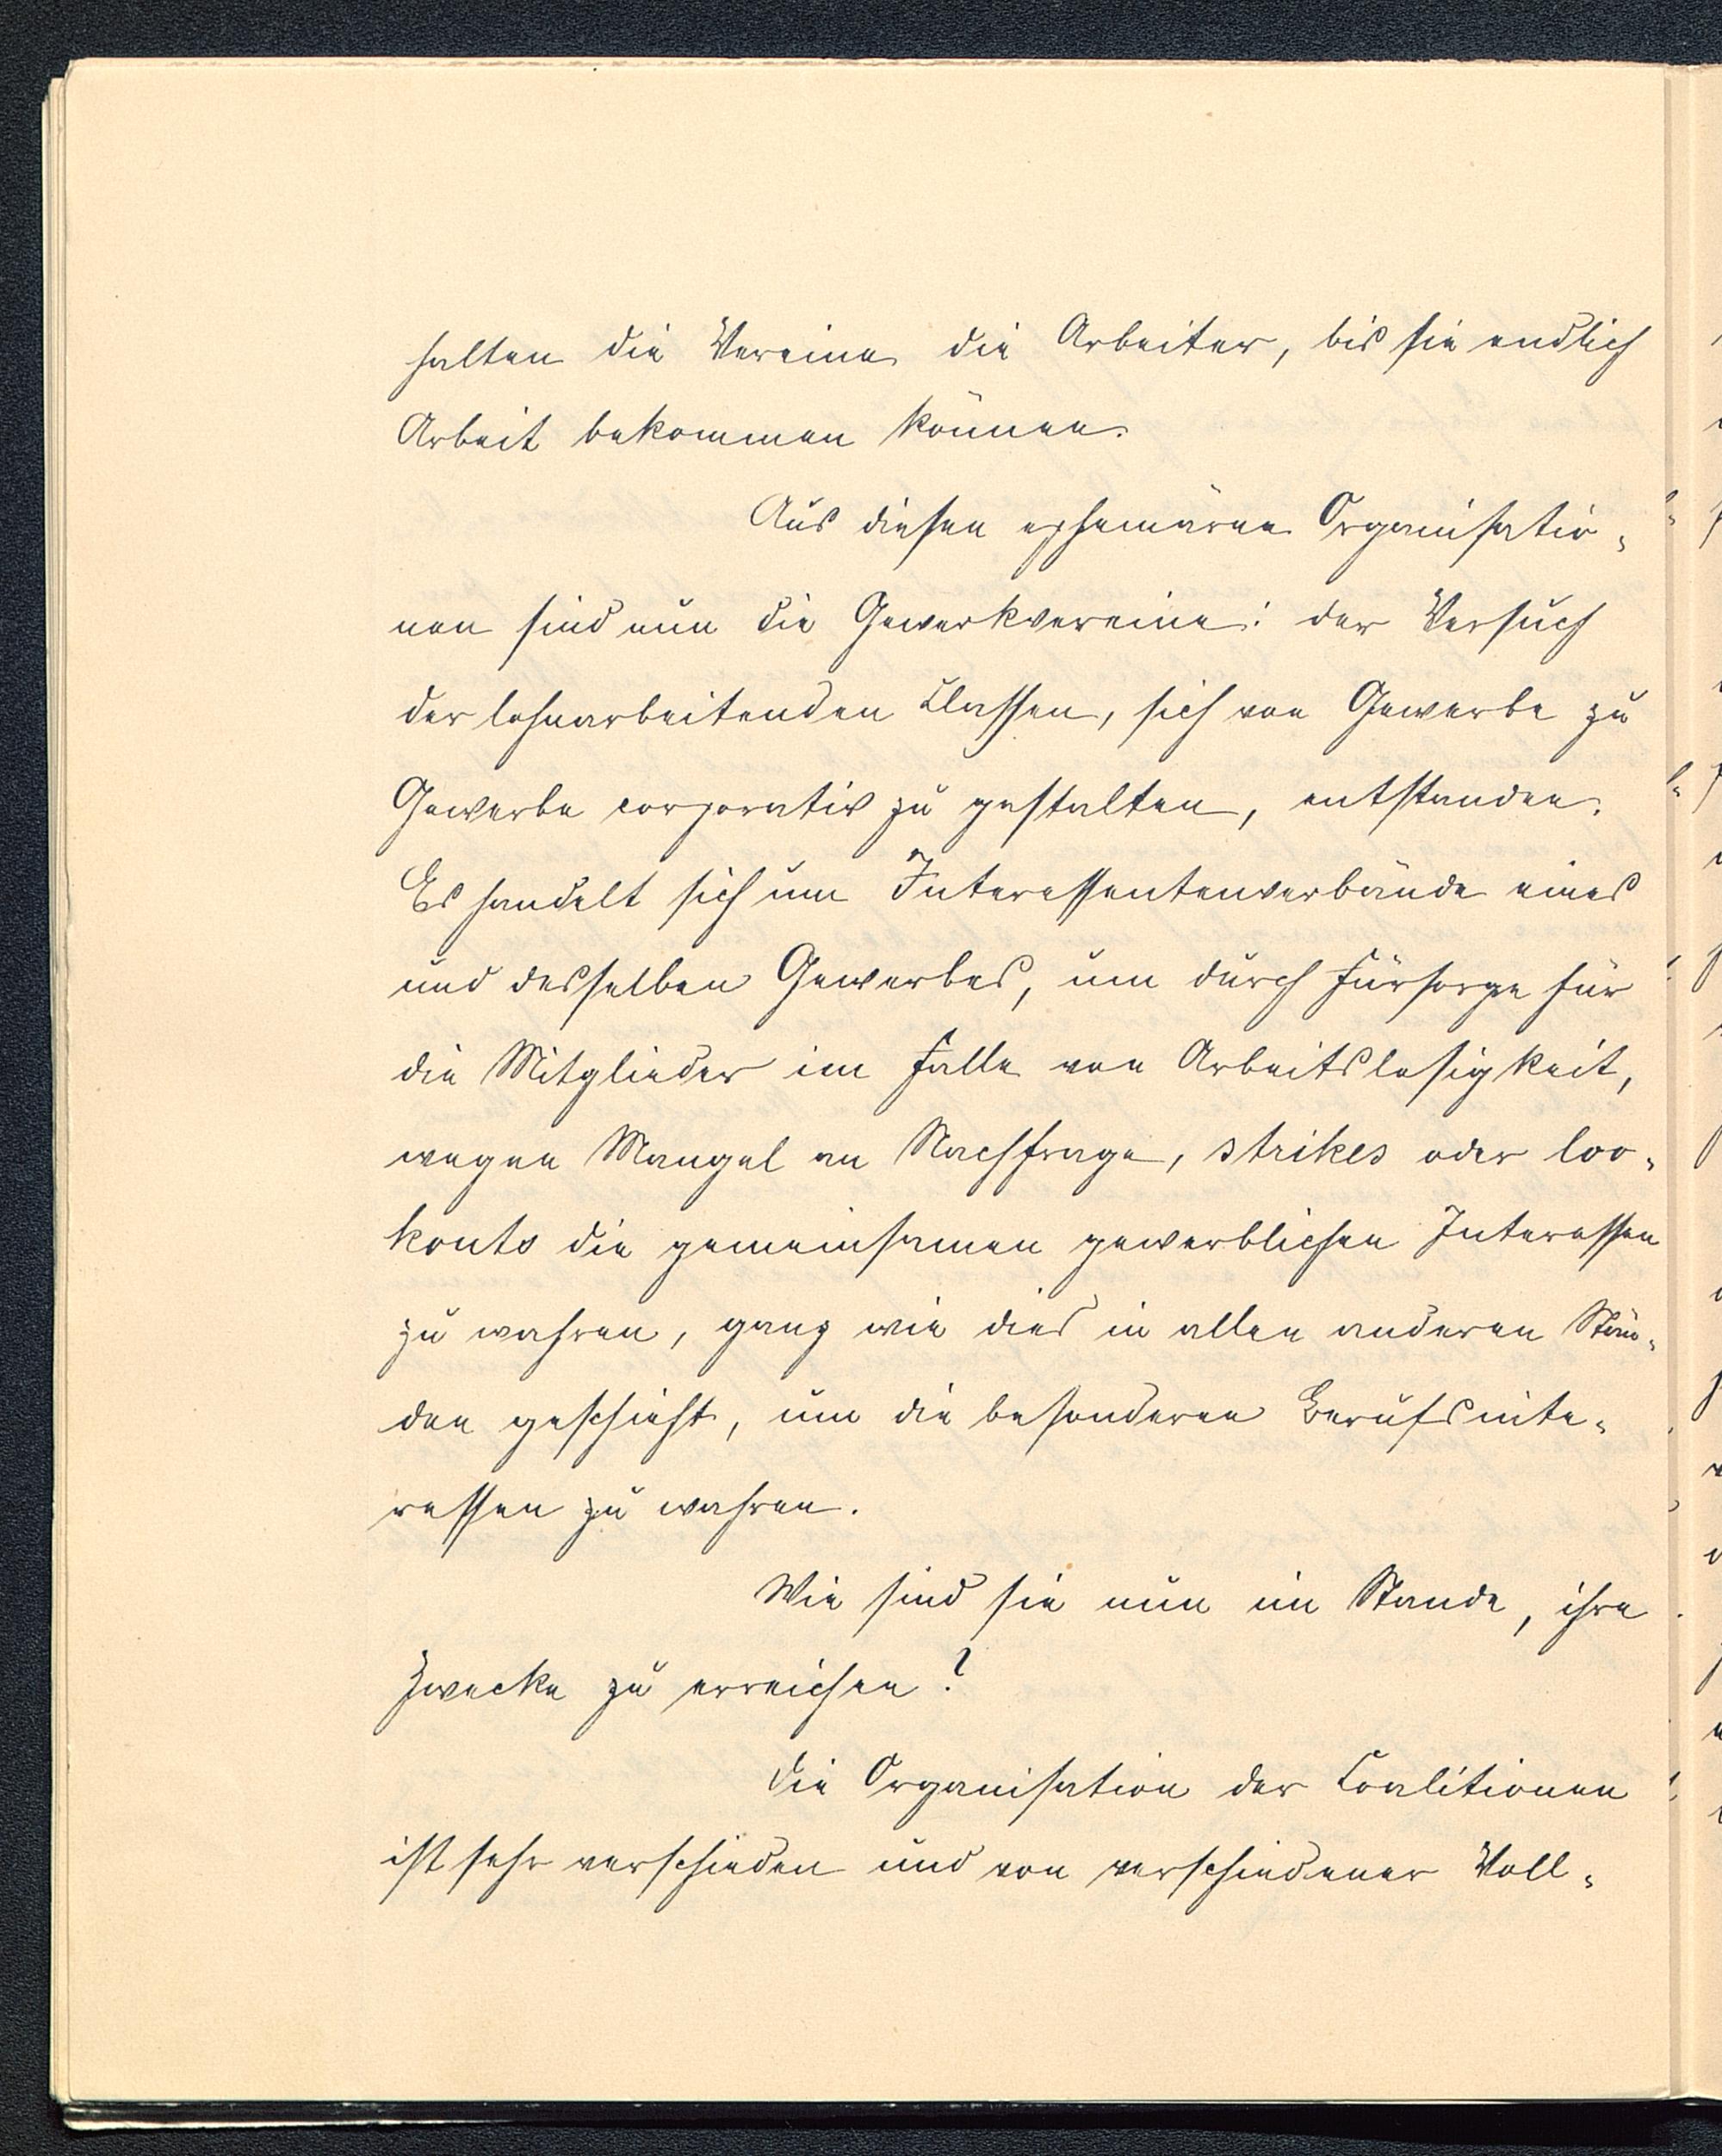 halten die Vereine die Arbeiter, bis sie endlich
Arbeit bekommen können.
Aus diesen ephemären Organisatio-
nen sind nun die Gewerkvereine: der Versuch
der lohnarbeitenden Classen, sich von Gewerbe zu
Gewerbe corporativ zu gestalten, entstanden.
Es handelt sich um Interessentenverbände eines
und desselben Gewerbes, um durch Fürsorge für
die Mitglieder im Falle von Arbeitslosigkeit,
wegen Mangel an Nachfrage, strikes oder loo-
kouts die gemeinsamen gewerblichen Interessen
zu wahren, ganz wie dies in allen anderen Stän-
den geschieht, um die besonderen Berufsinte-
ressen zu wahren.
Wie sind sie nun im Stande, ihre
Zwecke zu erreichen?
Die Organisation der Coalitionen
ist sehr verschieden und von verschiedener Voll-